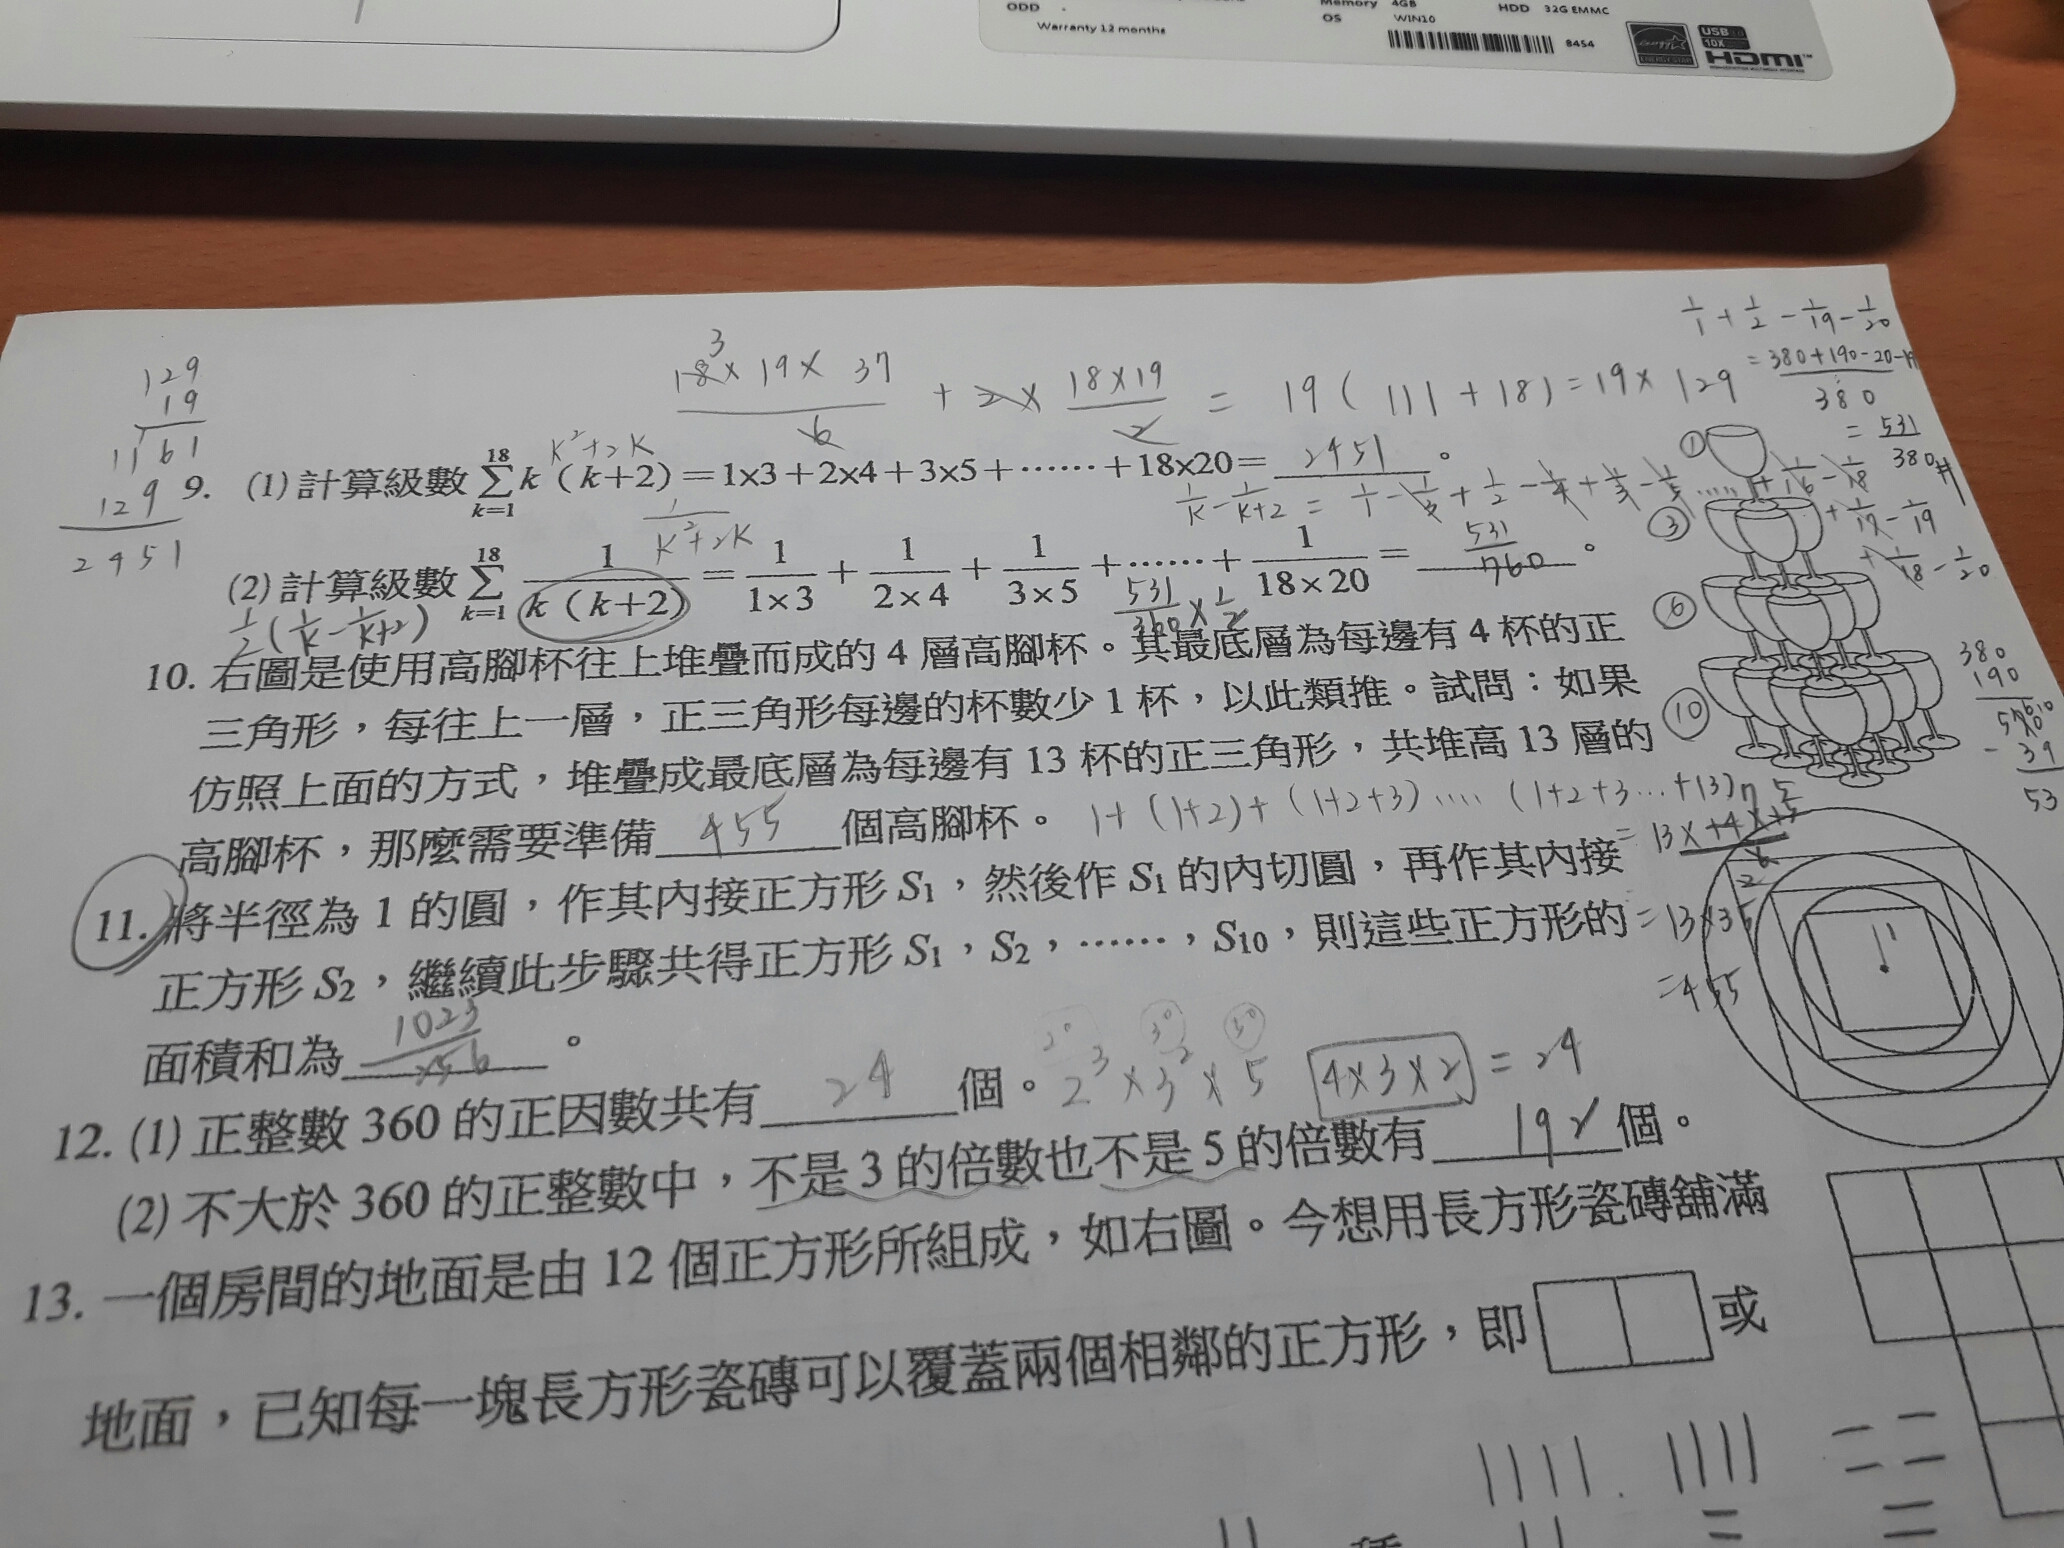 ODD -
Warranty 12 months
Memory 4GB
OS WIN10
HDD 32G EMMC
8454
ENERGY STAR
USB
10X
HDMI™
129
19
1161
129
2451
3
18×19×37/6 + 2×18×19/2 = 19(111+18)=19×129
1/1+1/2-1/19-1/20
=380+190-20-19/380
=531/380
k²+2k
9. (1)計算級數 18Σk=1 k(k+2)=1×3+2×4+3×5+……+18×20=2451。
1/k²+2k
1/k-1/k+2 = 1/1-1/3+1/2-1/4+1/3-1/5.....+1/16-1/18
+1/17-1/19
+1/18-1/20
(2)計算級數 18Σk=1 1/k(k+2)=1/1×3+1/2×4+1/3×5+……+1/18×20=531/760。
1/2(1/k-1/k+2)
531/380×1/2
10. 右圖是使用高腳杯往上堆疊而成的 4 層高腳杯。其最底層為每邊有 4 杯的正
三角形，每往上一層，正三角形每邊的杯數少 1 杯，以此類推。試問：如果
仿照上面的方式，堆疊成最底層為每邊有 13 杯的正三角形，共堆高 13 層的
高腳杯，那麼需要準備 455 個高腳杯。 1+(1+2)+(1+2+3)....(1+2+3...+13)
① ③ ⑥ ⑩
380
190
570
-39
53
=13×14×15/6
=13×35
=455
11. 將半徑為 1 的圓，作其內接正方形 S1，然後作 S1 的內切圓，再作其內接
正方形 S2，繼續此步驟共得正方形 S1，S2，……，S10，則這些正方形的
面積和為 1023/256 。
2⁰ 3⁰ 5⁰
12. (1) 正整數 360 的正因數共有 24 個。 2³×3²×5 4×3×2 = 24
(2) 不大於 360 的正整數中，不是 3 的倍數也不是 5 的倍數有 192 個。
13. 一個房間的地面是由 12 個正方形所組成，如右圖。今想用長方形瓷磚舖滿
地面，已知每一塊長方形瓷磚可以覆蓋兩個相鄰的正方形，即 或